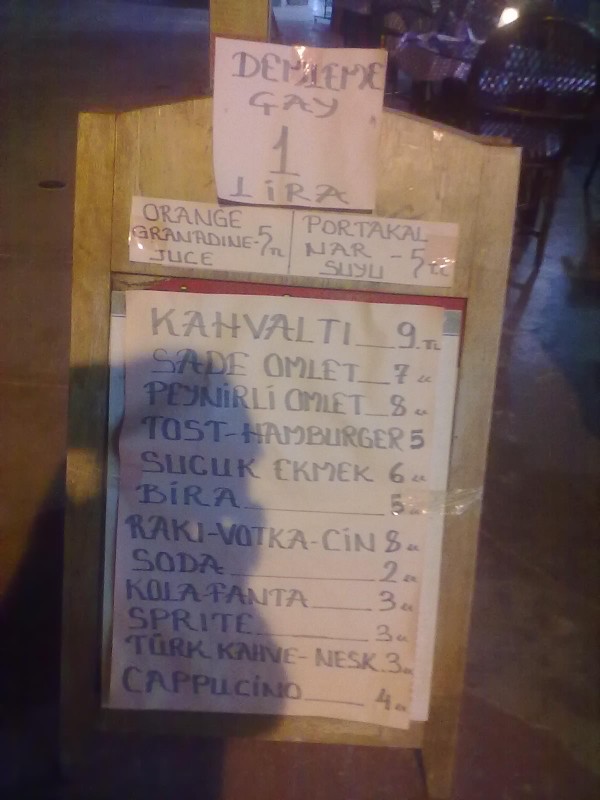 DEMLEME
ÇAY
1
LİRA
ORANGE
GRANADINE-5TL
JUCE
PORTAKAL
NAR - 5TL
SUYU
KAHVALTI__9.TL
SADE OMLET__7 "
PEYNİRLİ OMLET_8 "
TOST-HAMBURGER 5
SUCUK EKMEK 6 "
BİRA________5 "
RAKI-VOTKA-CİN 8 "
SODA________2 "
KOLA-FANTA____3 "
SPRITE________3 "
TÜRK KAHVE-NESK.3 "
CAPPUCİNO____4 "